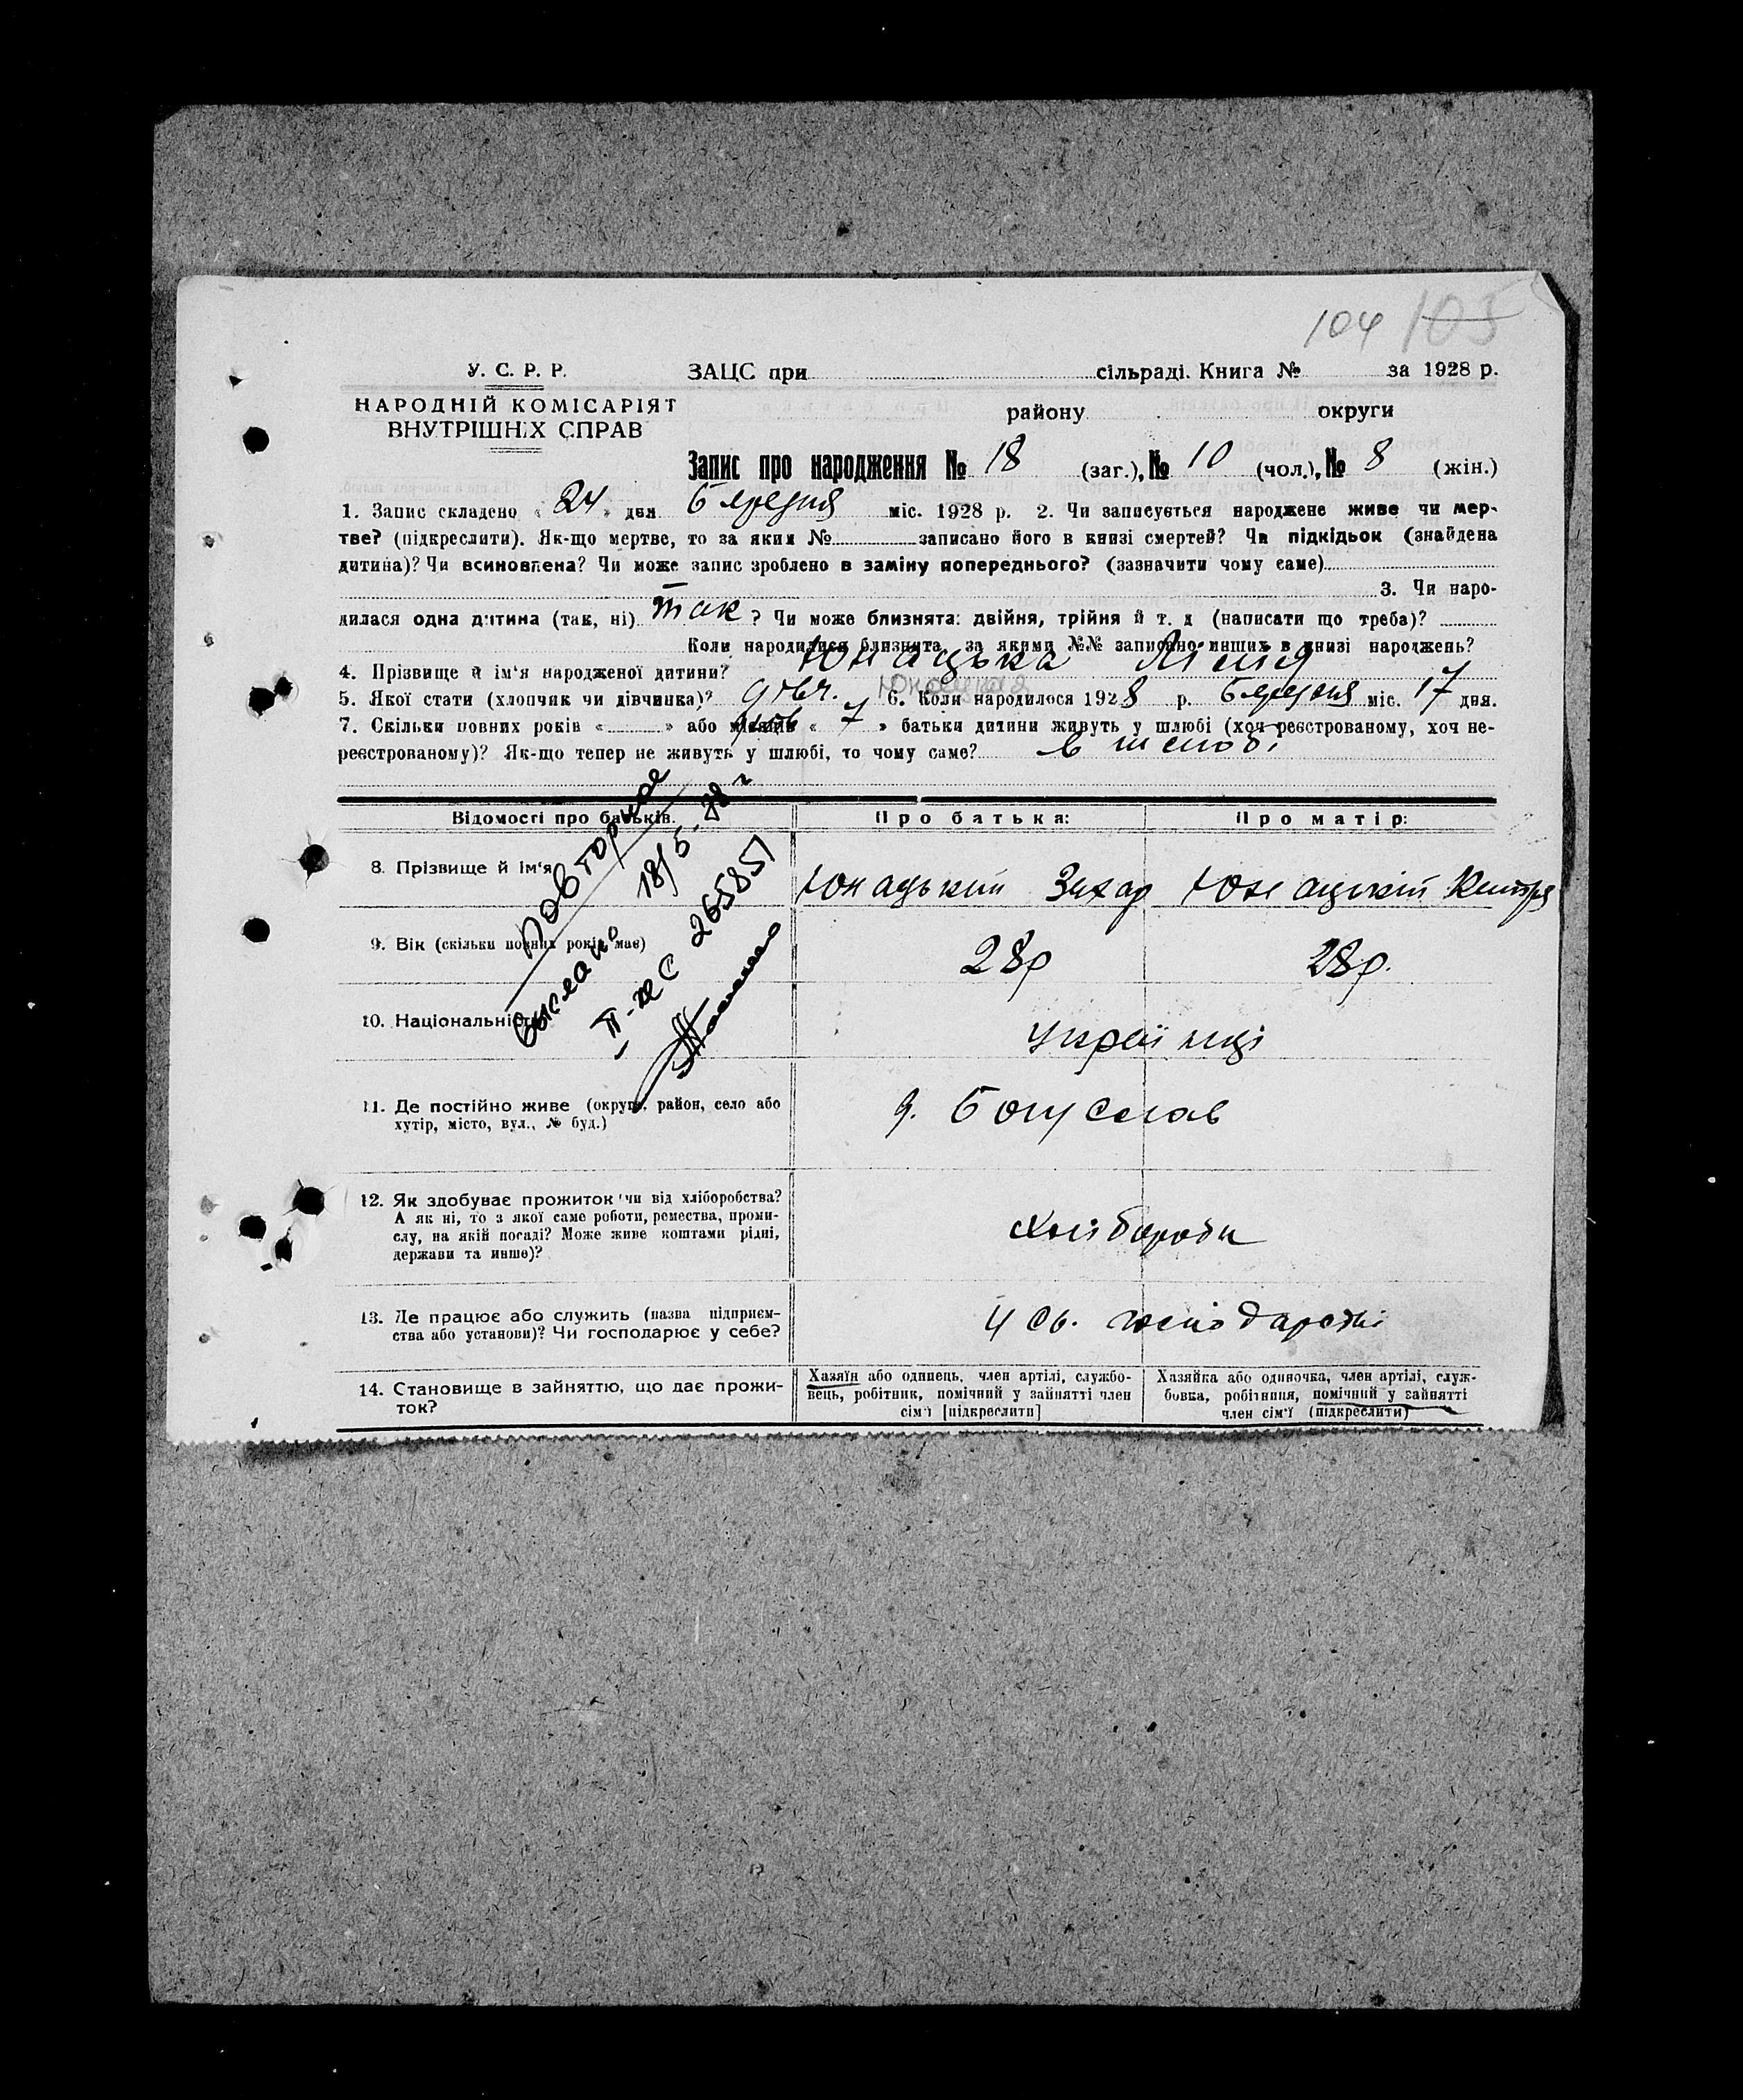 104 105
У. С. Р. Р.
НАРОДНІЙ КОМІСАРІЯТ
ВНУТРІШНІХ СПРАВ
ЗАЦС при сільраді. Книга № за 1928 р.
району округи
Запис про народження № 18 (заг.), № 10 (чол.), № 8 (жін.)
1. Запис складено « 24 » дня березня міс. 1928 р. 2. Чи записується народжене живе чи мер-
тве? (підкреслити). Як-що мертве, то за яким № записано його в книзі смертей? Чи підкідьок (знайдена
дитина)? Чи всиновлена? Чи може запис зроблено в заміну попереднього? (зазначити чому саме)
3. Чи наро-
дилася одна дитина (так, ні) так ? Чи може близнята: двійня, трійня й т. д (написати що треба)?
Коли народилися близнята, за якими №№ записано инших в книзі народжень?
4. Прізвище й ім'я народженої дитини? Юнацька
Юнацкая
5. Якої стати (хлопчик чи дівчинка)? дівч. 6. Коли народилося 1928 р. березня міс. 17 дня.
7. Скільки повних років « » або « 7 » батьки дитини живуть у шлюбі (хоч реєстрованому, хоч не-
реєстрованому)? Як-що тепер не живуть у шлюбі, то чому саме? в шлюбі
Відомості про батьків. Про батька: Про матір:
повторное
18/5-88 г
выслано
II-ЖС 265851
8. Прізвище й ім'я Юнацький Захар Юнацький
9. Вік (скільки повних років має) 28р 28р.
10. Національність українці
11. Де постійно живе (округа, район, село або
хутір, місто, вул., № буд.) Богуслав
12. Як здобуває прожиток чи від хліборобства?
А як ні, то з якої саме роботи, ремества, проми-
слу, на якій посаді? Може живе коштами рідні,
держави та инше)?
хлібороби
13. Де працює або служить (назва підприєм-
ства або установи)? Чи господарює у себе?
у св. господарстві
14. Становище в зайняттю, що дає прожи-
ток?
Хазяїн або одинець, член артілі, службо-
вець, робітник, помічний у зайнятті член
сім'ї [підкреслити]
Хазяйка або одиночка, член артілі, служ-
бовка, робітниця, помічний у зайнятті
член сім'ї (підкреслити)